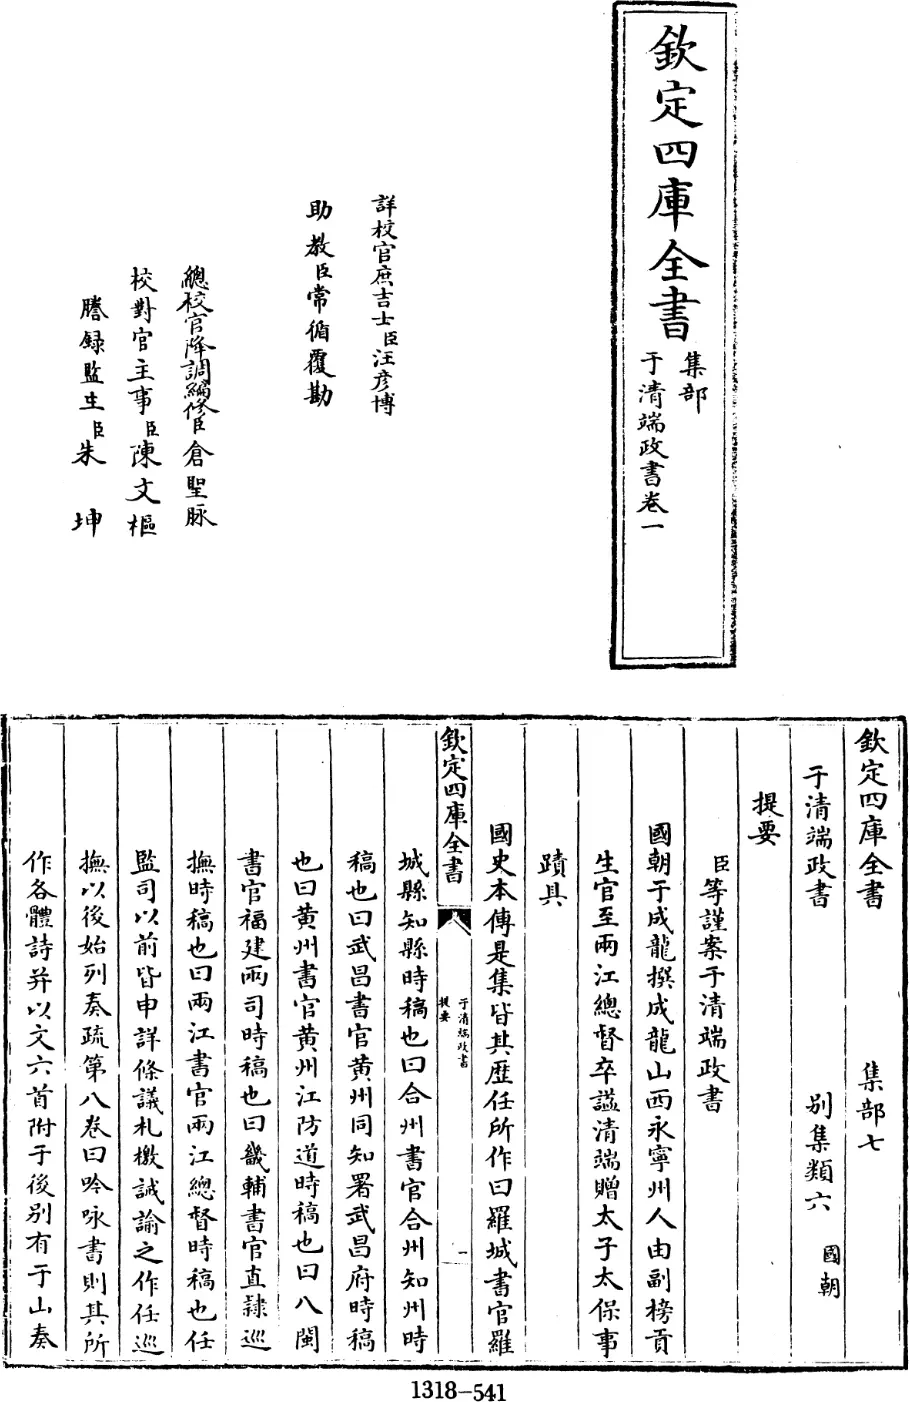 欽定四庫全書
集部
于清端政書卷一
詳校官庶吉士臣汪彦博
助教臣常循覆勘
總校官降調編修臣倉聖脉
校對官主事臣陳文樞
謄録監生臣朱坤
欽定四庫全書 集部七
于清端政書 别集類六 國朝
提要
臣等謹案于清端政書
國朝于成龍撰成龍山西永寧州人由副榜貢
生官至兩江總督卒諡清端贈太子太保事
蹟具
國史本傳是集皆其歴任所作曰羅城書官羅
欽定四庫全書
于清端政書
提要
一
城縣知縣時稿也曰合州書官合州知州時
稿也曰武昌書官黄州同知署武昌府時稿
也曰黄州書官黄州江防道時稿也曰八閩
書官福建兩司時稿也曰畿輔書官直隸巡
撫時稿也曰兩江書官兩江總督時稿也任
監司以前皆申詳條議札檄誡諭之作任巡
撫以後始列奏疏第八卷曰吟咏書則其所
作各體詩并以文六首附于後别有于山奏
1318-541